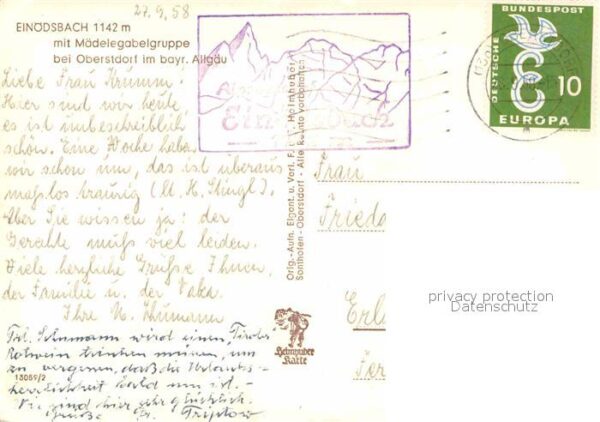 27.9.58
EINÖDSBACH 1142 m
mit Mädelegabelgruppe
bei Oberstdorf im bayr. Allgäu
Liebe Frau Krumm!
Hier sind wir heute
es ist unbeschreiblich
schön. Eine Woche haben
wir schon um, das ist überaus
maßlos traurig (lt. H. Stingl).
Aber Sie wissen ja: der
Gerechte muß viel leiden.
Viele herzliche Grüße Ihnen,
der Familie u. der
Ihre
Frl. wird einen "Tiroler"
Rotwein trinken müssen, um
zu vergessen, daß die Urlaubs-
herrlichkeit bald um ist. -
Wir sind hier sehr glücklich.
13089/2
Grüße
Orig.-Aufn. Eigent. u. Verl. F. u. E. Heimhuber
Sonthofen - Oberstdorf - Alle Rechte vorbehalten
Heimhuber
Karte
Einödsbach
DEUTSCHE BUNDESPOST
E 10
EUROPA
Frau
Frieda
Erl
privacy protection
Datenschutz